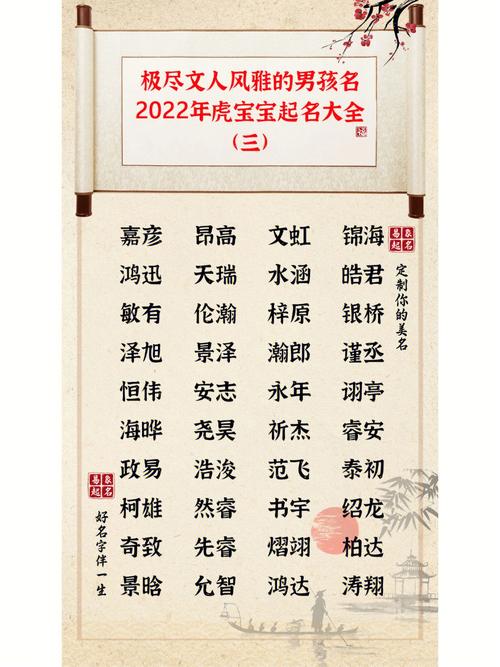 极尽文人风雅的男孩名
2022年虎宝宝起名大全
(三)
嘉彦 昂高 文虹 锦海
鸿迅 天瑞 水涵 皓君
敏有 伦瀚 梓原 银桥
泽旭 景泽 瀚郎 谨丞
恒伟 安志 永年 诩亭
海晔 尧昊 祈杰 睿安
政易 浩浚 范飞 泰初
柯雄 然睿 书宇 绍龙
奇致 先睿 熠翊 柏达
景晗 允智 鸿达 涛翔
易象
起名
定制你的美名
易象
起名
好名字伴一生